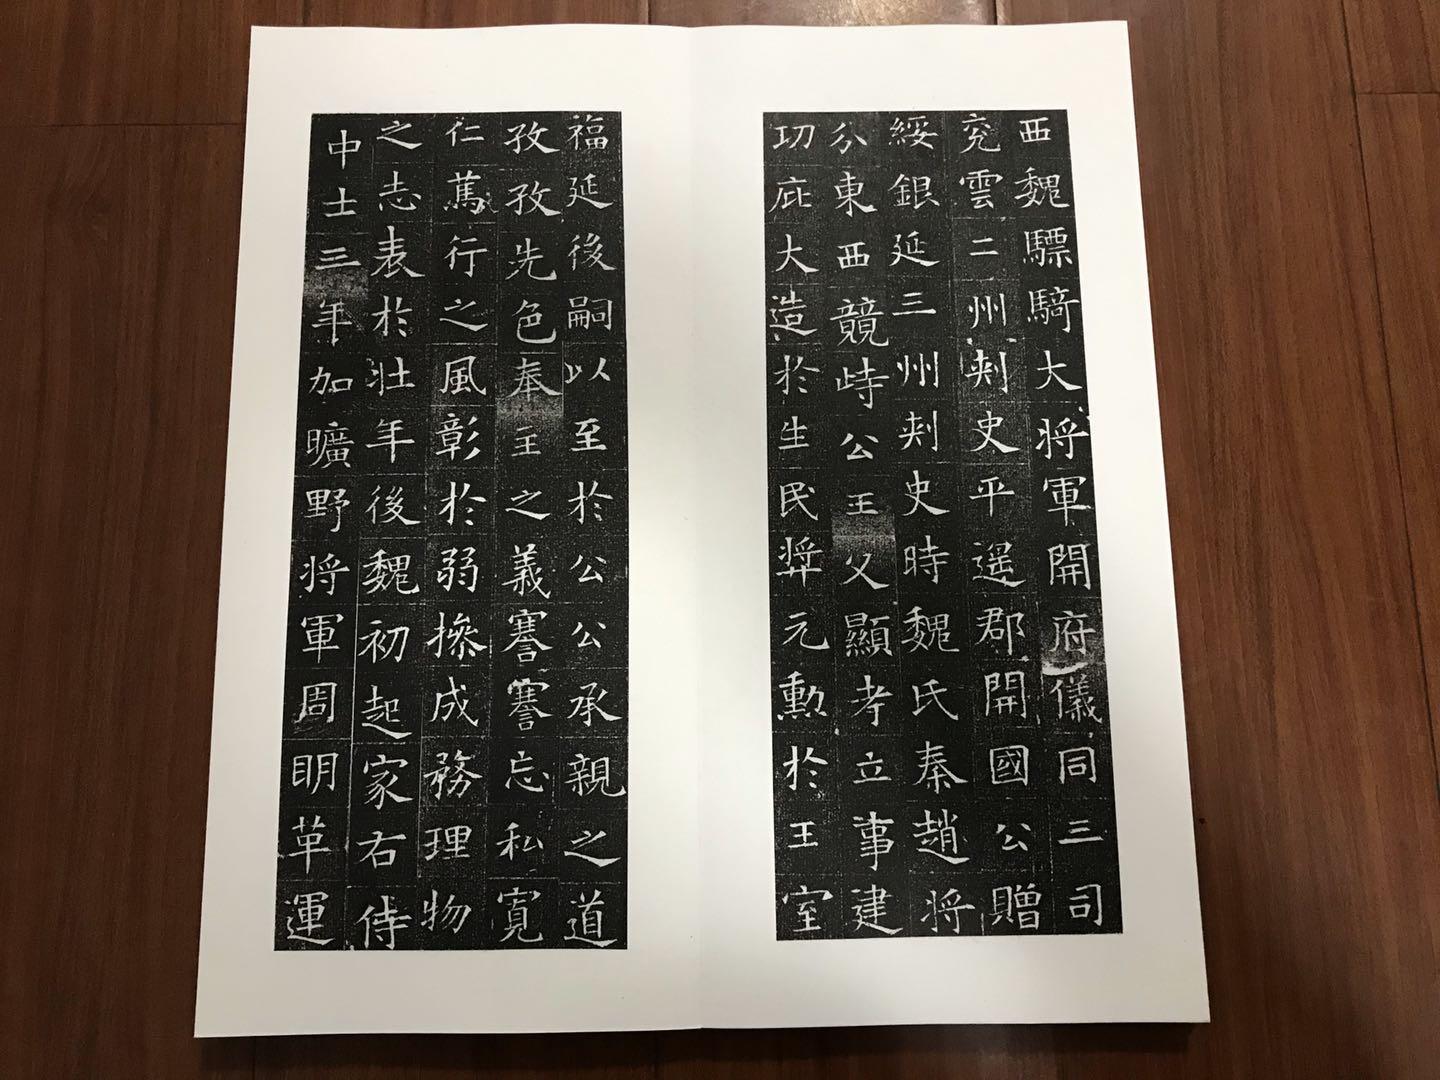 西魏驃騎大將軍開府儀同三司
兖雲二州刾史平遥郡開國公贈
綏銀延三州刾史時魏氏秦趙將
分東西競峙公王父顯孝立事建
功庇大造於生民奬元勲於王室
福延後嗣以至於公公承親之道
孜孜先色奉主之義謇謇忘私寬
仁篤行之風彰於弱操成務理物
之志表於壯年後魏初起家右侍
中士三年加曠野將軍周明革運